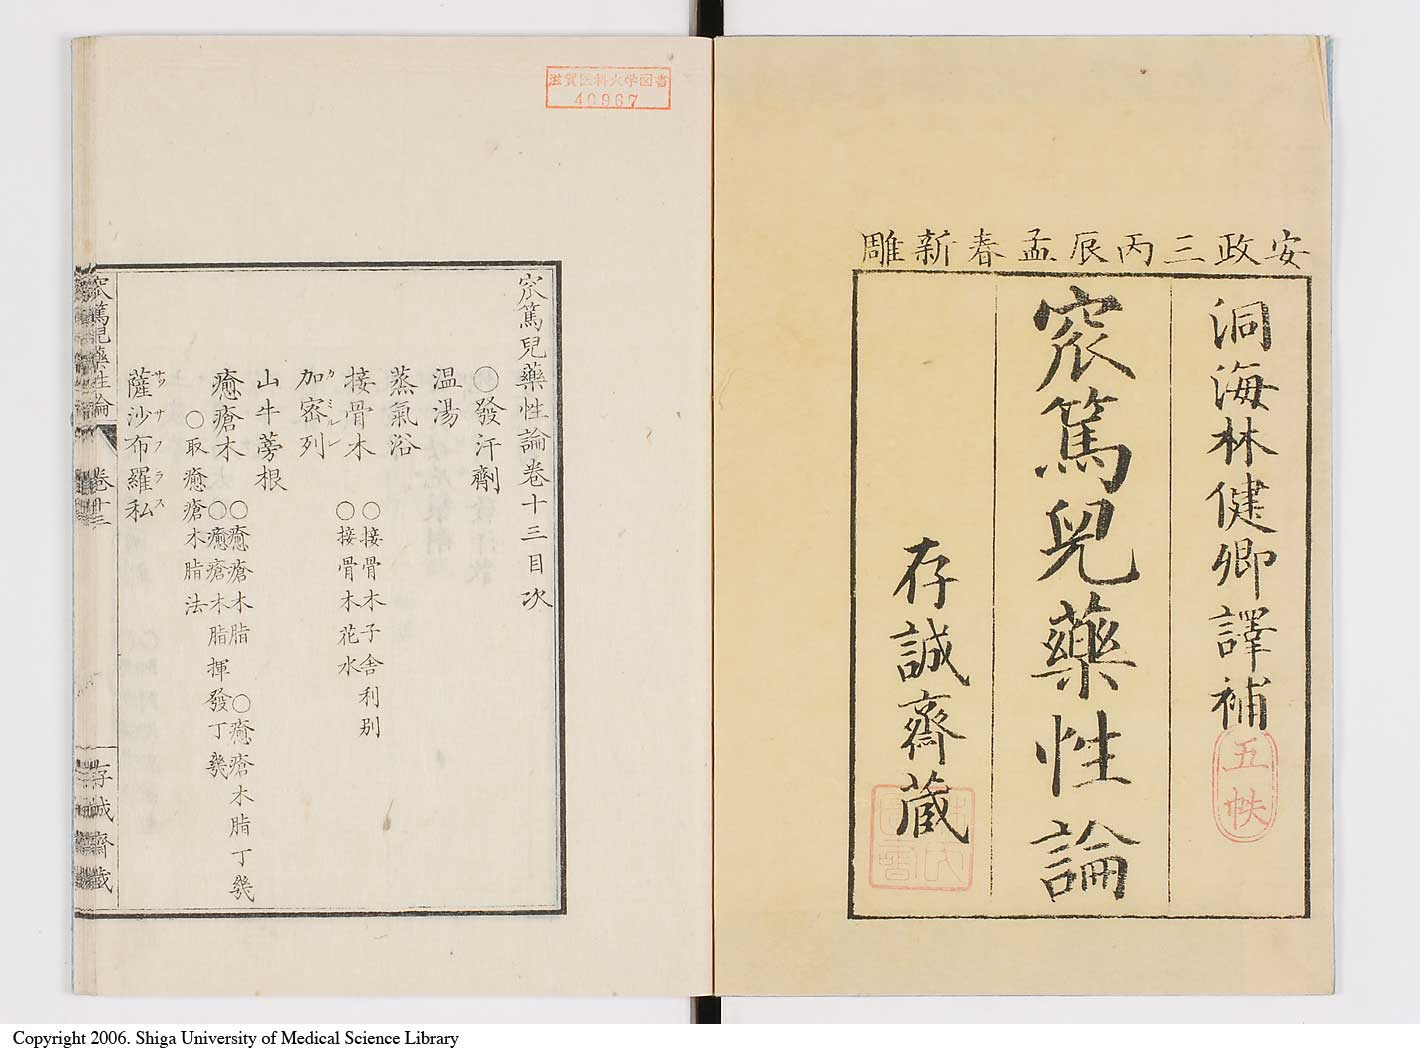 安政三丙辰孟春新雕
洞海林健卿譯補
五帙
窊篤兒藥性論
存誠齋蔵
滋賀医科大学図書
40967
窊篤兒藥性論卷十三目次
〇發汗劑
温湯
蒸氣浴
接骨木 〇接骨木子舎利別
〇接骨木花水
加密列
カミルレ
山牛蒡根
癒瘡木 〇癒瘡木脂 〇癒瘡木脂丁幾
〇癒瘡木脂揮發丁幾
〇取癒瘡木脂法
薩沙布羅私
サッサフラス
窊篤兒藥性論 卷十三 存誠齋蔵
Copyright 2006. Shiga University of Medical Science Library